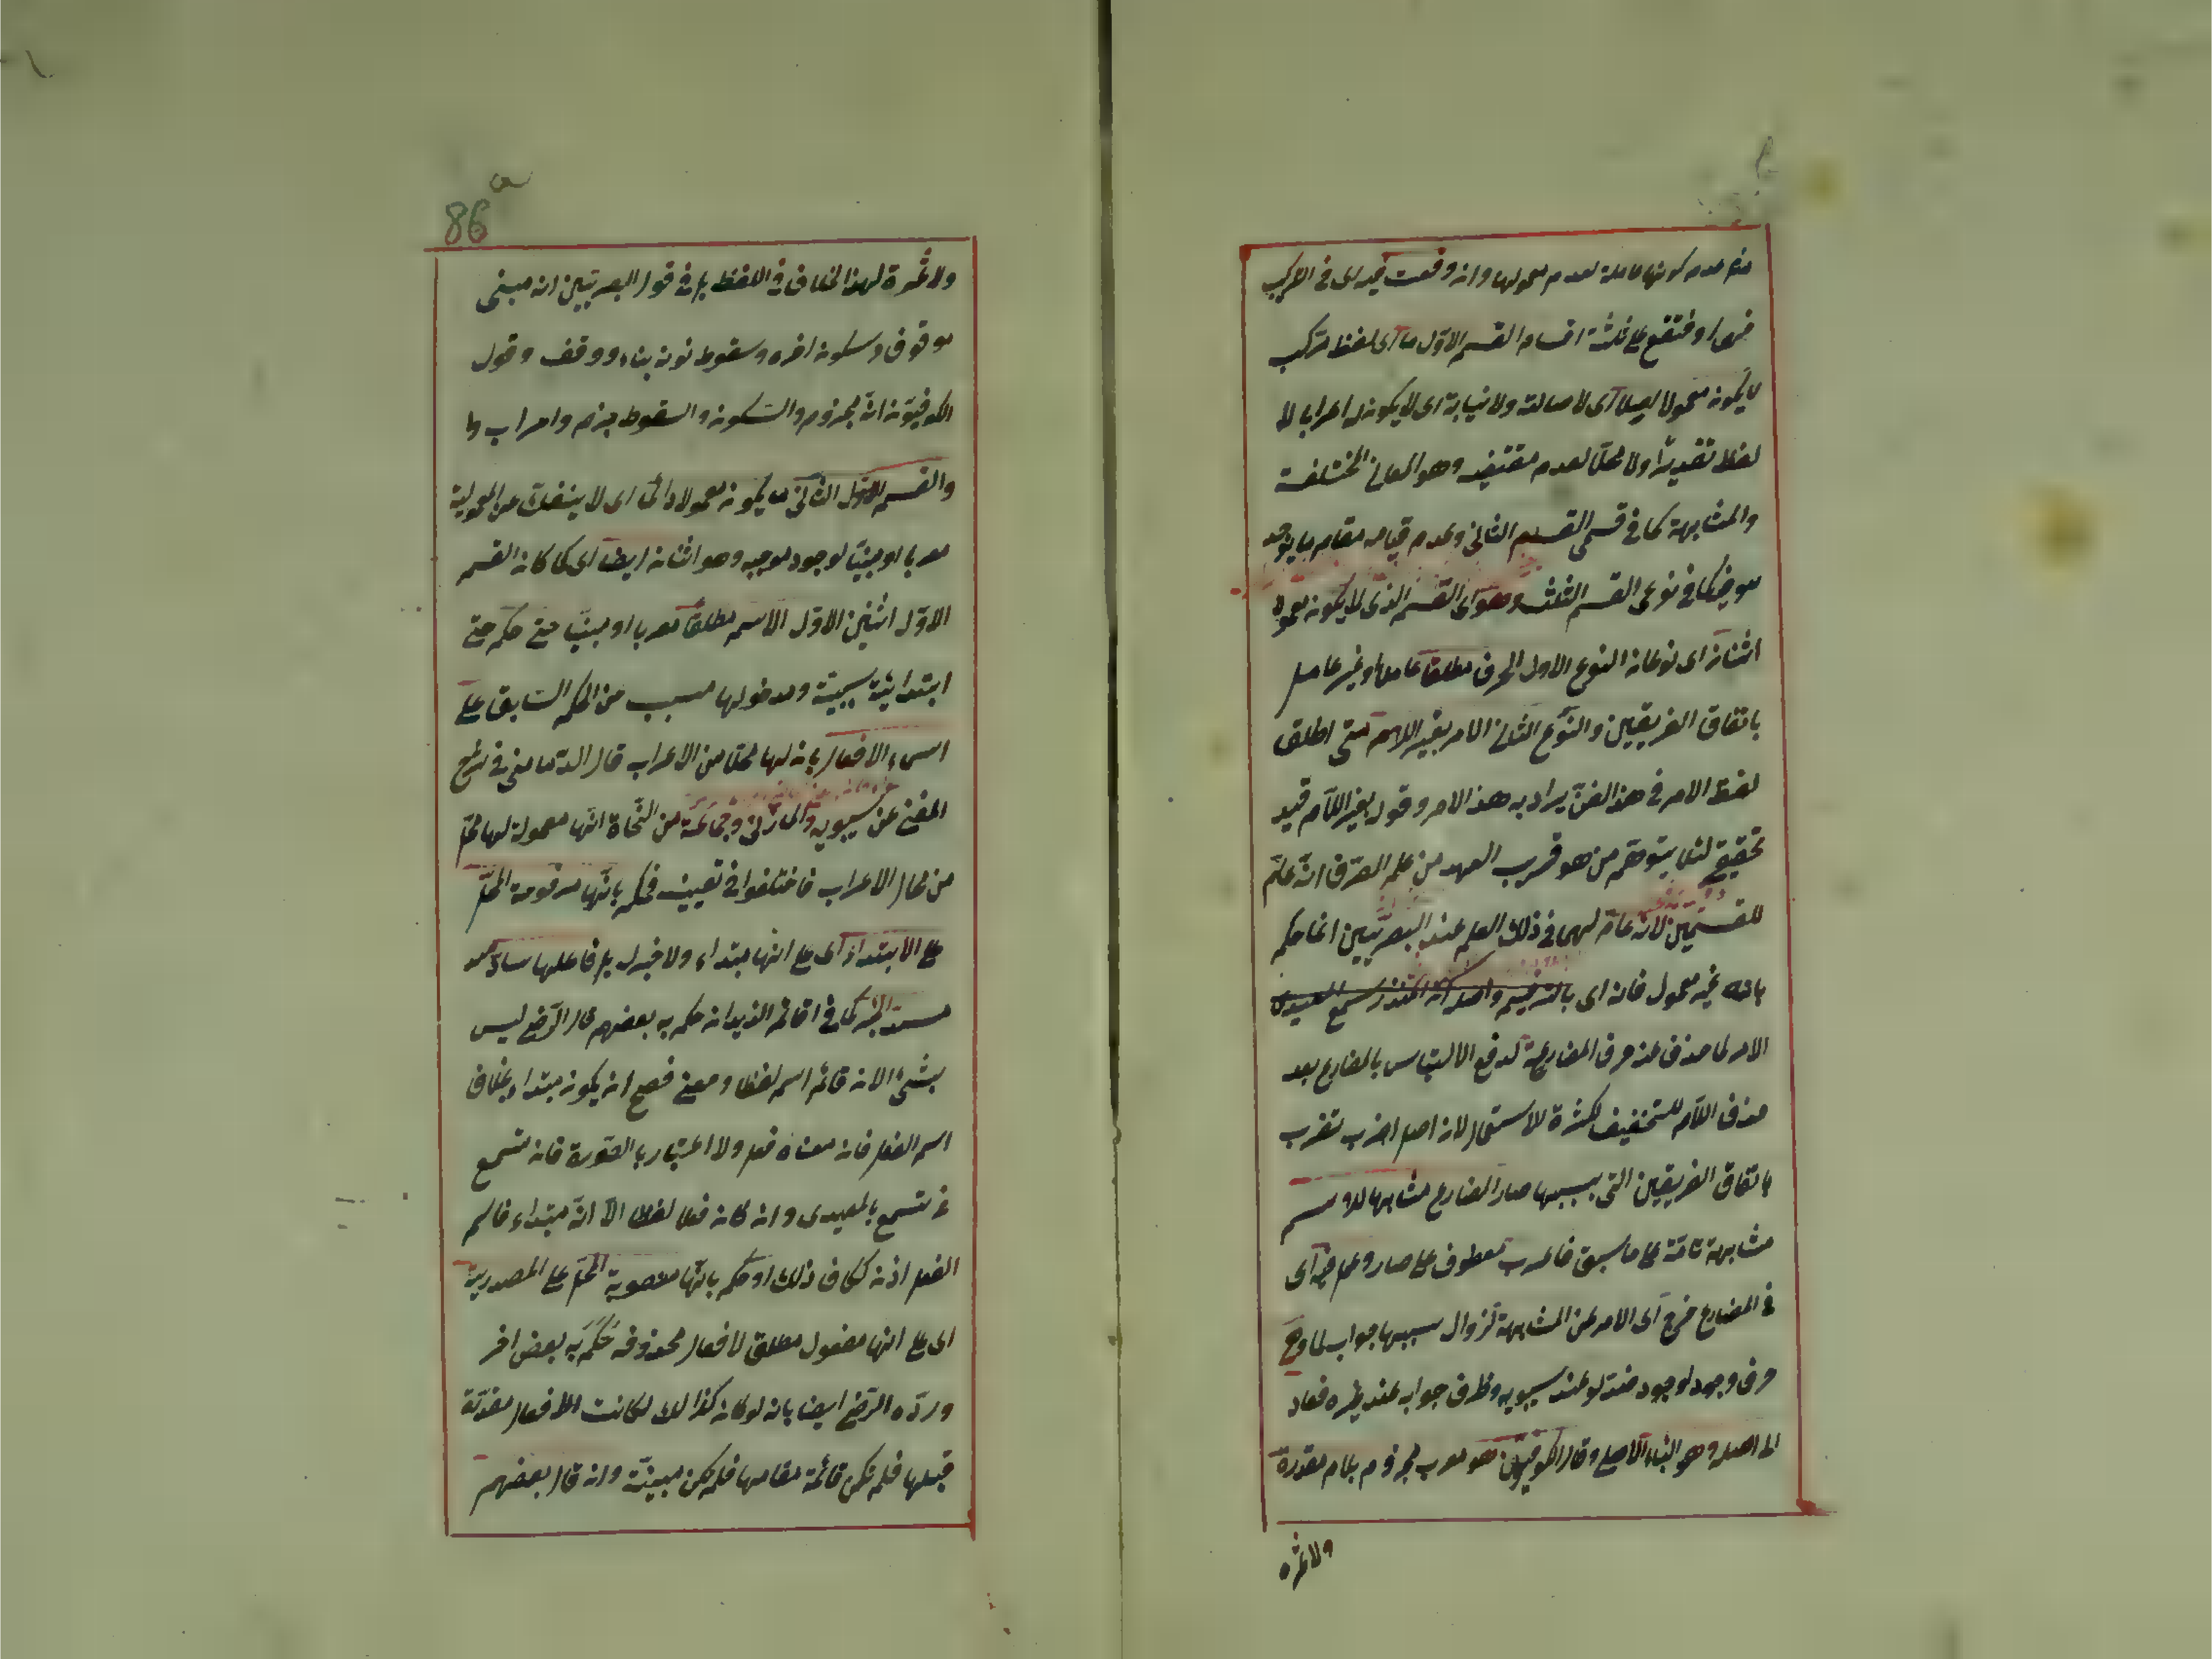 منع عدم كونها عاملة لعدم معمولها وان وقعت فيه اى فى التركيب
فهى اوفتقع على ثلثة اقسام القسم الاول ما اى لفظ تركب
لا يكون معمولا اصلا اى لا اصالة ولا نيابة اى لا يكون له اعراب لا
لفظا تقديرا ولا محلا لعدم مقتضيه وهو المعانى المختلفة
والمشابهة كما فى قسمى القسم الثانى وعدم قيامه مقام ما يوجد
موضعه كما فى نوعى القسم الثلث وهو اى القسم الذى لا يكون معمولا
اثنان اى نوعان النوع الاول الحرف مطلقا عاملا وغير عامل
باتفاق الفريقين والنوع الثانى الامر بغير اللام متى اطلق
لفظ الامر فى هذا الفن يراد به هذا الامر وقوله بغير اللام قيد
تحقيق لئلا يتوهم من هو قريب العهد من علم الصرف انه عام
للقسمين لانه عام لهما فى ذلك العلم عند البصريين انما حكم
بانه غير معمول فانه اى
الامر لما حذف عنه حرف المضارعة لدفع الالتباس بالمضارع بعد
حذف اللام للتخفيف لكثرة الاستعمال لان اصل اضرب لتضرب
باتفاق الفريقين التى بسببها صار المضارع مشابها للاسم
مشابهة تامة على ما سبق فاعرب معطوف على صار وعمل فيه اى
فى المضارع خرج اى الامر عن المشابهة لزوال سببها جواب لما وهى
حرف وجود لوجود عند سيبويه وظرف جوابه عند غيره فعاد
الى اصله وهو البناء الاصلى وقال الكوفيون هو معرب مجزوم بلام مقدرة
ولا ثمرة
86
ولا ثمرة لهذا الخلاف فى اللفظ بل فى قول البصريين انه مبنى
موقوف وسكون اخره وسقوط نونه بناء ووقف وقول
الكوفيون انه مجزوم والسكون والسقوط جزم واعراب
والقسم الاول الثانى ما يكون معمولا دائما اى لا ينفك عن المعمولية
معربا او مبنيا لوجود موجبه وهو اثنان ايضا اى كما كان القسم
الاول اثنين الاول الاسم مطلقا معربا او مبنيا حتى حكم حتى
ابتدائية سببية ومدخولها مسبب من الحكم السابق على
اسماء الافعال بان لها محلا من الاعراب قال الدمامينى فى شرح
المغنى عن سيبويه والمازنى وجماعة من النحاة انها معمولة لها محل
من محال الاعراب فاختلفوا فى تعيينه فحكم بانها مرفوعة المحل
على الابتداء اى على انها مبتداء ولا خبر له بل فاعلها ساد
مسد الخبر كما فى اقائم الزيدان حكم به بعضهم قال الرضى ليس
بشئ لان قائم اسم لفظا ومعنى فصح ان يكون مبتداء بخلاف
اسم الفعل فانه معناه فعل ولا اعتبار بالصورة فان تسمع
فى تسمع بالمعيدى وان كان فعلا لفظا الا انه مبتداء فاسم
الفعل اذن ككاف ذلك او حكم بانها منصوبة المحل على المصدرية
اى على انها مفعول مطلق لافعال محذوفة حكم به بعض اخر
ورده الرضى ايضا بانه لو كان كذالك لكانت الافعال مقدرة
قبلها فلم تكن قائمة مقامها فلم تكن مبنية وان قال بعضهم